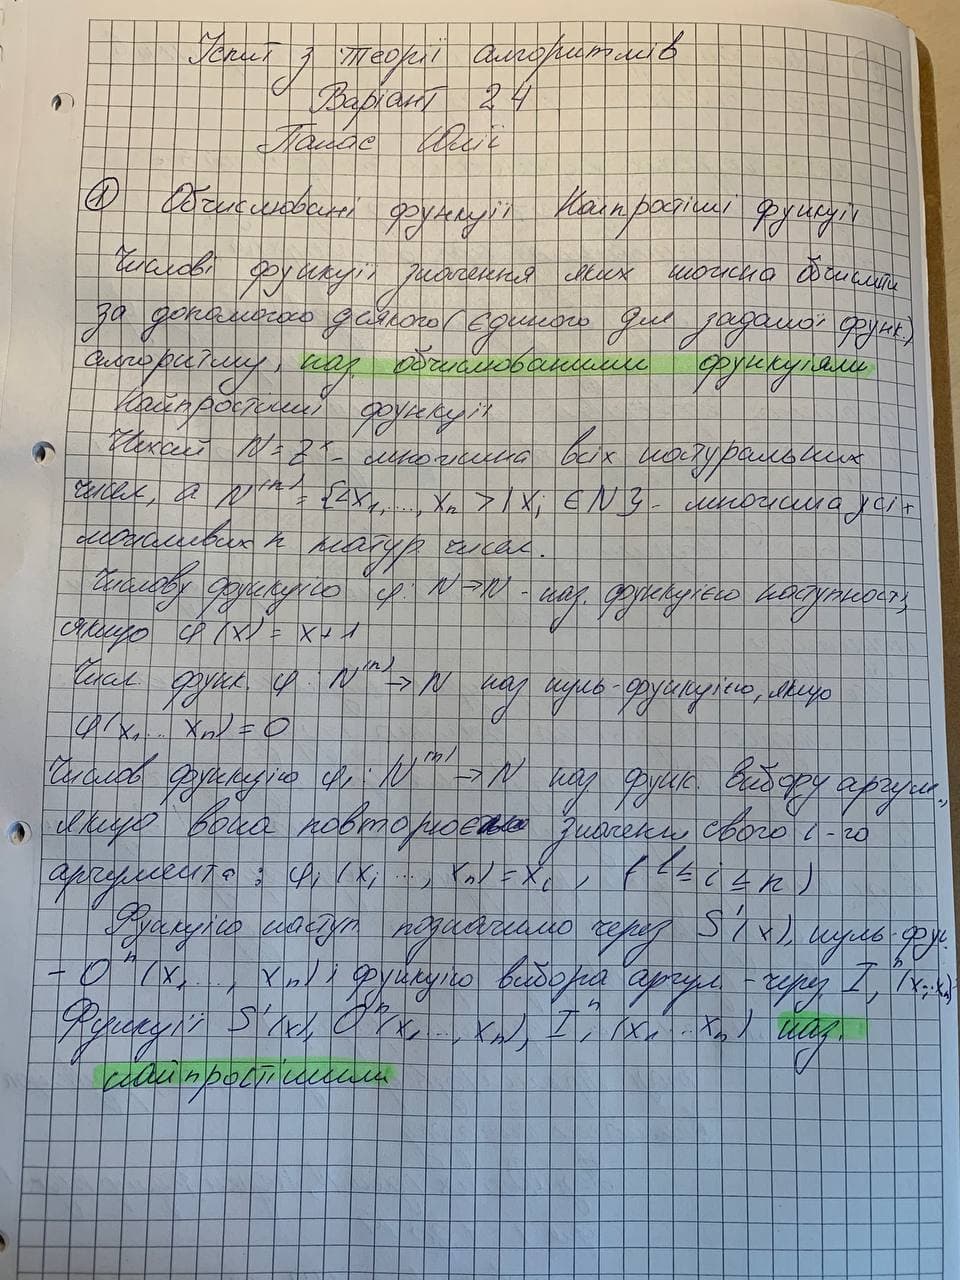 Іспит з теорії алгоритмів
Варіант 24
Папас Юлії
① Обчислювані функції Найпростіші функції
Числові функції значення яких можна обчислити
за допомогою деякого (єдиного для заданої функ.)
алгоритму, наз обчислюваними функціями
Найпростіші функції
Нехай N = Z⁺ - множина всіх натуральних
чисел, а N⁽ⁿ⁾ = {<x₁,..., xₙ>| xᵢ ∈ N} - множина усіх
можливих n натур чисел.
Числову функцію φ: N→N - наз. функцією наступності,
якщо φ(x) = x+1
Числ. функ. φ: N⁽ⁿ⁾ → N наз нуль-функцією, якщо
φ(x₁... xₙ) = 0
Числов функцію φᵢ: N⁽ⁿ⁾ → N наз функ. вибору аргум.,
якщо вона повторює значенн свого i-го
аргумента: φᵢ (xᵢ ..., xₙ) = xᵢ, (1 ≤ i ≤ n)
Функцію наступ позначимо через S'(x), нуль-фун.
- Oⁿ(x₁..., xₙ) і функцію вибора аргум. - через Iᵢⁿ (xᵢ..xₙ)
Функції S'(x), Oⁿ(x₁..., xₙ), Iᵢⁿ (x₁...xₙ) наз.
найпростішими